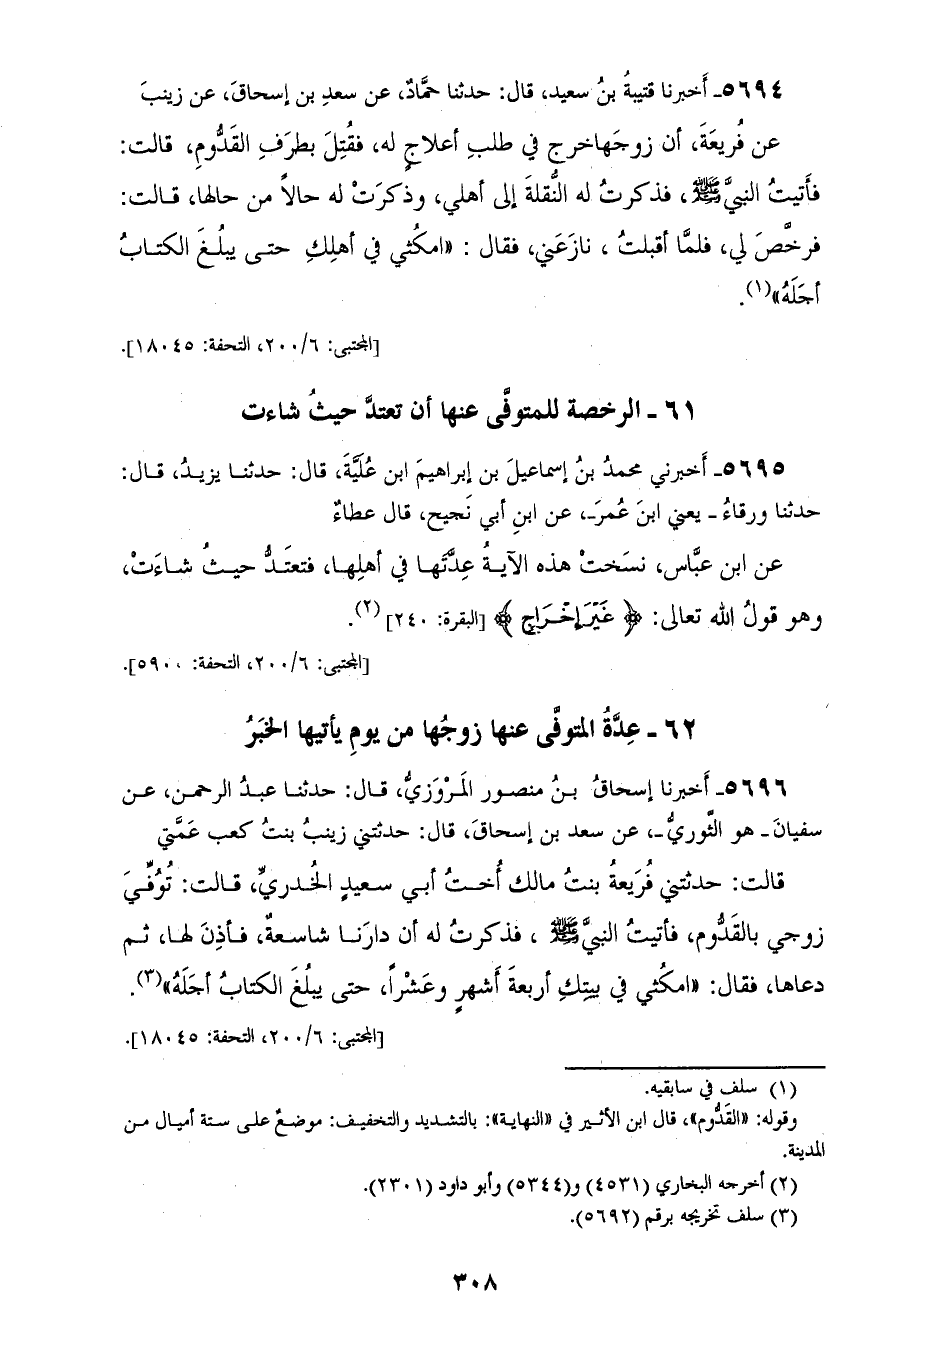 ٥٦٩٤ـ أَخبرنا قتيبةُ بنُ سعيد، قال: حدثنا حمَّادٌ، عن سعدِ بن إسحاقَ، عن زينبَ
عن فُريعَةَ، أن زوجَهاخرج في طلبِ أعلاجٍ له، فقُتِلَ بطرَفِ القَدُّومِ، قالت:
فأَتيتُ النبيَّ ﷺ، فذكرتُ له النُّقلةَ إلى أهلي، وذكرَتْ له حالاً من حالها، قـالت:
فرخَّصَ لي، فلمَّا أقبلتُ ، نازَعَني، فقال : «امكُثي في أهلِكِ حتـى يبلُـغَ الكتـابُ
أجَلَهُ»(١).
[المجتبى: ٢٠٠/٦، التحفة: ١٨٠٤٥].
٦١ ـ الرخصة للمتوفَّى عنها أن تعتدَّ حيثُ شاءت
٥٦٩٥ـ أَخبرني محمدُ بنُ إسماعيلَ بن إبراهيمَ ابن عُلَيَّةَ، قال: حدثنـا يزيـدُ، قـال:
حدثنا ورقاءُ ـ يعني ابنَ عُمرَـ، عن ابنِ أبي نَجيح، قال عطاءٌ
عن ابن عبَّاس، نسَختْ هذه الآيـةُ عِدَّتَهـا في أهلِهـا، فتعتَـدُّ حيـثُ شـاءَتْ،
وهو قولُ الله تعالى: ﴿ غَيْرَ إِخْرَاجٍ ﴾ [البقرة: ٢٤٠] (٢).
[المجتبى: ٢٠٠/٦، التحفة: ٥٩٠٠].
٦٢ ـ عِدَّةُ المتوفَّى عنها زوجُها من يومِ يأتيها الخبَرُ
٥٦٩٦ـ أَخبرنا إسحاقُ بـنُ منصور المَرْوَزيُّ، قـال: حدثنـا عبدُ الرحمن، عـن
سفيانَ ـ هو الثَّوريُّ ـ، عن سعد بن إسحاقَ، قال: حدثتني زينبُ بنتُ كعب عَمَّتي
قالت: حدثتني فُرَيعةُ بنتُ مالك أُخـتُ أبـي سـعيدٍ الخُـدريِّ، قـالت: تُوُفِّـيَ
زوجي بالقَدُّوم، فأتيتُ النبيَّ ﷺ ، فذكرتُ له أن دارَنـا شاسعةٌ، فـأذِنَ لهـا، ثـم
دعاها، فقال: «امكُثي في بيتِكِ أربعةَ أشهرٍ وعَشْراً، حتى يبلُغَ الكتابُ أجلَهُ»(٣).
[المجتبى: ٢٠٠/٦، التحفة: ١٨٠٤٥].
(١) سلف في سابقيه.
وقوله: «القَدُّوم»، قال ابن الأثـير في «النهاية»: بالتشديد والتخفيف: موضعٌ على ستة أميال مـن
المدينة.
(٢) أخرجه البخاري (٤٥٣١) و(٥٣٤٤) وأبو داود (٢٣٠١).
(٣) سلف تخريجه برقم (٥٦٩٢).
٣٠٨